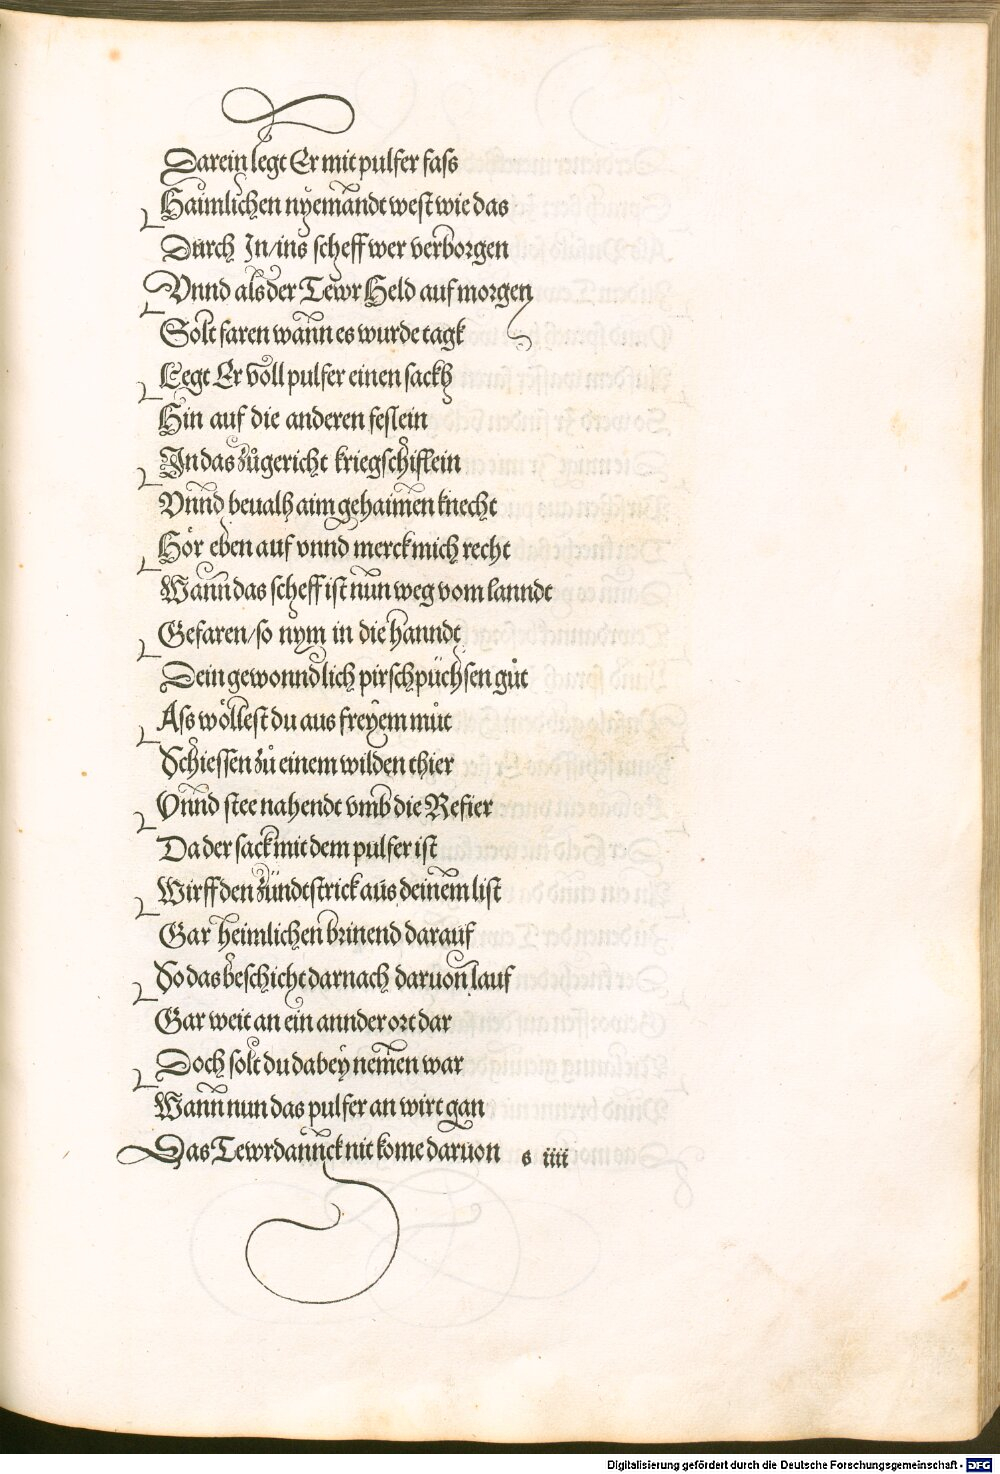 Darein legt Er mit pulfer fass
Haimlichen nyemandt west wie das
Durch In/ins scheff wer verborgen
Vnnd als der Tewr Held auf morgen
Solt faren wann es wurde tagk
Legt Er voll pulfer einen sackh
Hin auf die anderen feslein
In das zůgericht kriegschiflein
Vnnd beualh aim gehaimen knecht
Hör eben auf vnnd merck mich recht
Wann das scheff ist nun weg vom lanndt
Gefaren/so nym in die hanndt
Dein gewonndlich pirschpüchsen gůt
Ass wöllest du aus freyem můt
Schiessen zů einem wilden thier
Vnnd stee nahendt vmb die Refier
Da der sack mit dem pulfer ist
Wirff den zündtstrick aus deinem list
Gar heimlichen brinend darauf
So das beschicht darnach daruon lauf
Gar weit an ein annder ort dar
Doch solt du dabey nemen war
Wann nun das pulfer an wirt gan
Das Tewrdannck nit kome daruon s iiii
Digitalisierung gefördert durch die Deutsche Forschungsgemeinschaft - DFG